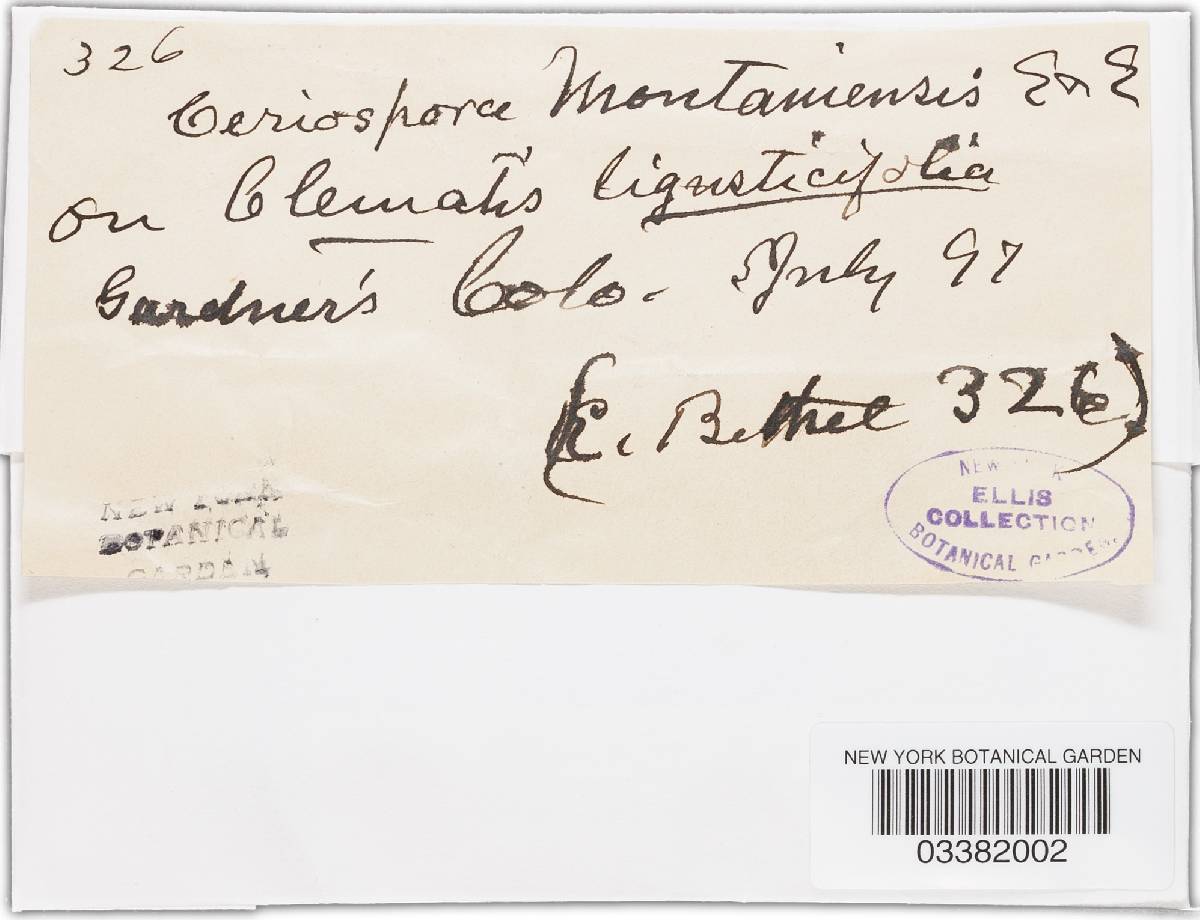 326
Ceriospora Montaniensis E & E
on Clematis ligusticifolia
Gardner's Colo. July 97
(E. Bethel 326)
NEW YORK
BOTANICAL
GARDEN
NEW YORK
ELLIS
COLLECTION
BOTANICAL GARDEN.
NEW YORK BOTANICAL GARDEN
03382002